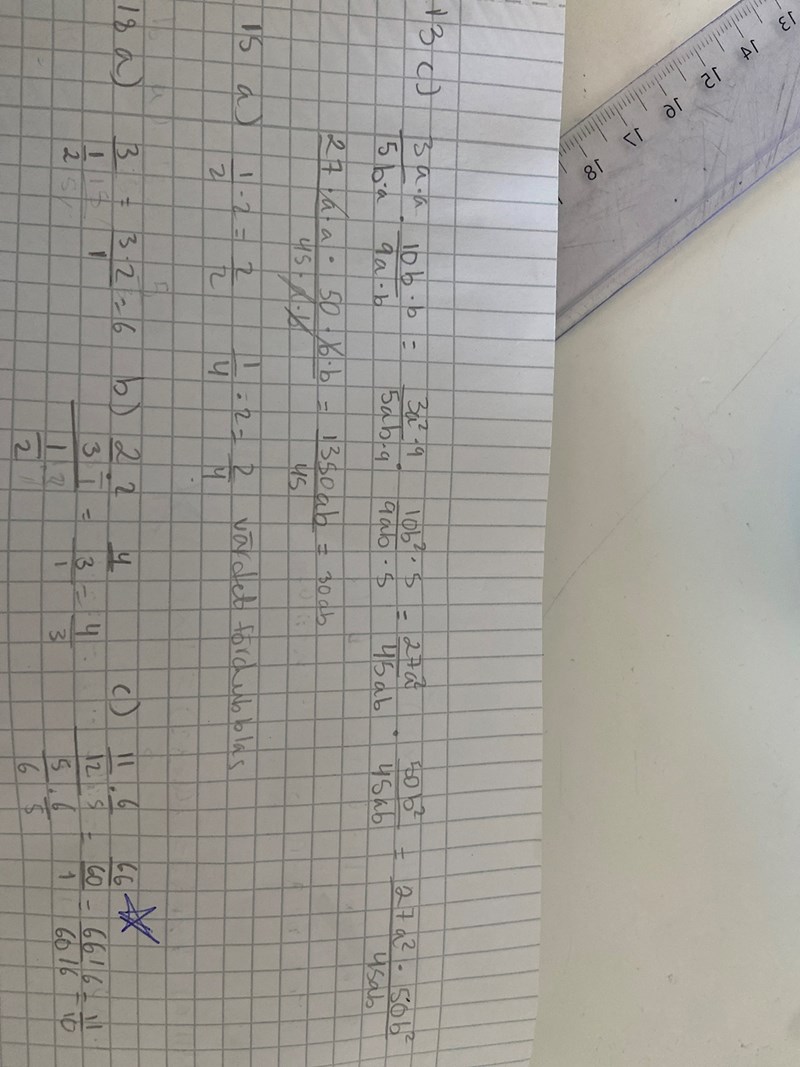 13 c) 3a·a/5b·a · 10b·b/9a·b = 3a²·9/5ab·9 · 10b²·5/9ab·5 = 27a²/45ab · 50b²/45ab = 27a²·50b²/45ab
27·a·a·50·b·b/45·a·b = 1350ab/45 = 30ab
15 a) 1/2 · 2 = 2/2 1/4 · 2 = 2/4 värdet fördubblas
18 a) 3/(1/2) = 3·2/1 = 6 b) (2/3 · 2/1)/(1/2) = (4/3)/1 = 4/3 c) (11/12 · 6/5)/(5/6 · 6/5) = (66/60)/1 = 66/6/60/6 = 11/10
13 14 15 16 17 18